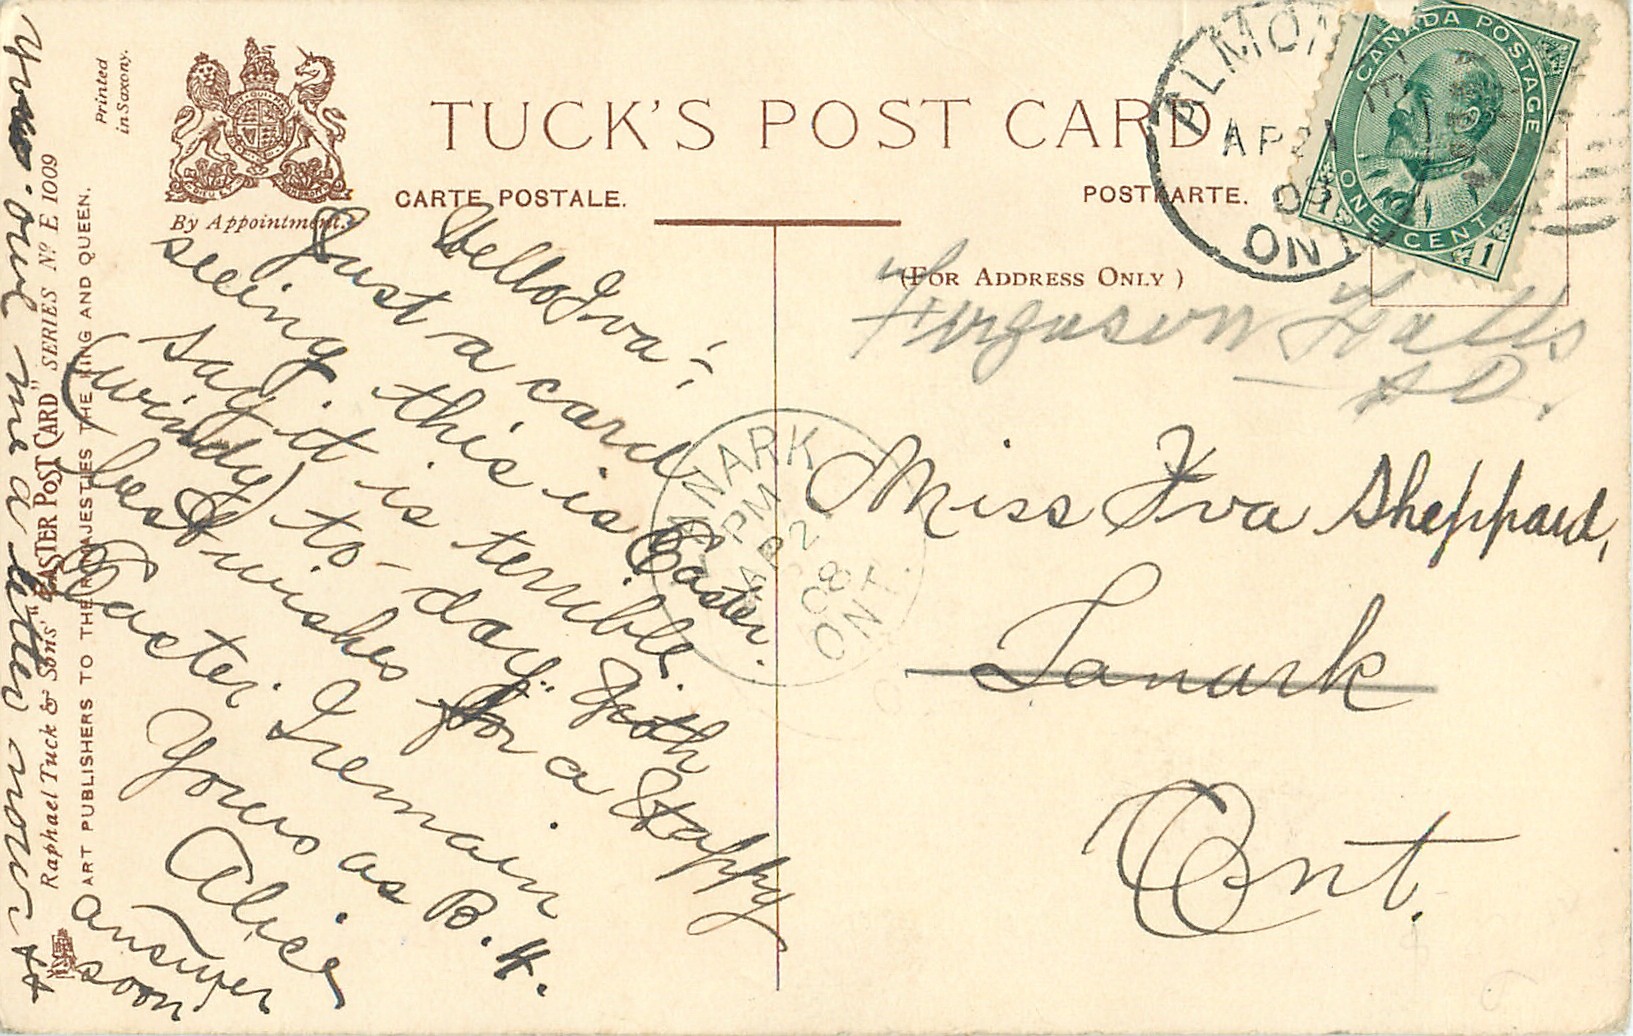 Printed
in Saxony.
By Appointment.
TUCK'S POST CARD
CARTE POSTALE.
POSTKARTE.
(FOR ADDRESS ONLY)
Raphael Tuck & Sons' "EASTER POST CARD" SERIES Nº E 1009
ART PUBLISHERS TO THEIR MAJESTIES THE KING AND QUEEN.
CANADA POSTAGE
ONE CENT
1
1
AP 21
08
ONT
LANARK
PM
AP 2
08
ONT.
Hello Iva:-
Just a card
seeing this is Easter.
say it is terrible
(windy) to-day. With
best wishes for a Happy
Easter. I remain
Yours as B.4.
Alice
answer
soon!
You owe me a letter now
Ferguson Falls
Miss Iva Sheppard,
Lanark
Ont.